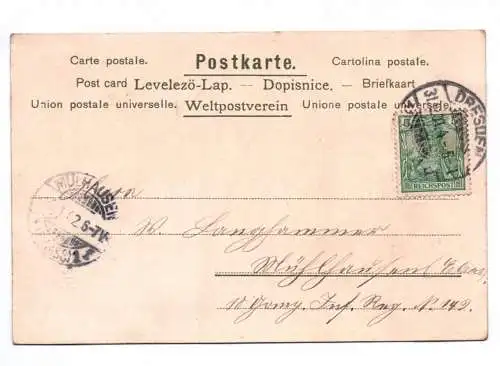 Carte postale. Postkarte. Cartolina postale.
Post card Levelezö-Lap. — Dopisnice. — Briefkaart
Union postale universelle. Weltpostverein Unione postale universale.
DRESDEN
5
REICHSPOST
MÜLHAUSEN
2.6-7V
Herrn
W. Langhammer
Mühlhausen
10 Comp. Inf. Reg. No. 142.